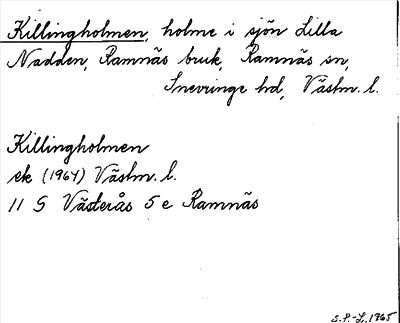 Killingholmen, holme i sjön Lilla
Nadden, Ramnäs bruk, Ramnäs sn,
Snevringe hd, Västm. l.
Killingholmen
ek (1964) Västm. l.
11 G Västerås 5 e Ramnäs
S.P.-L. 1965